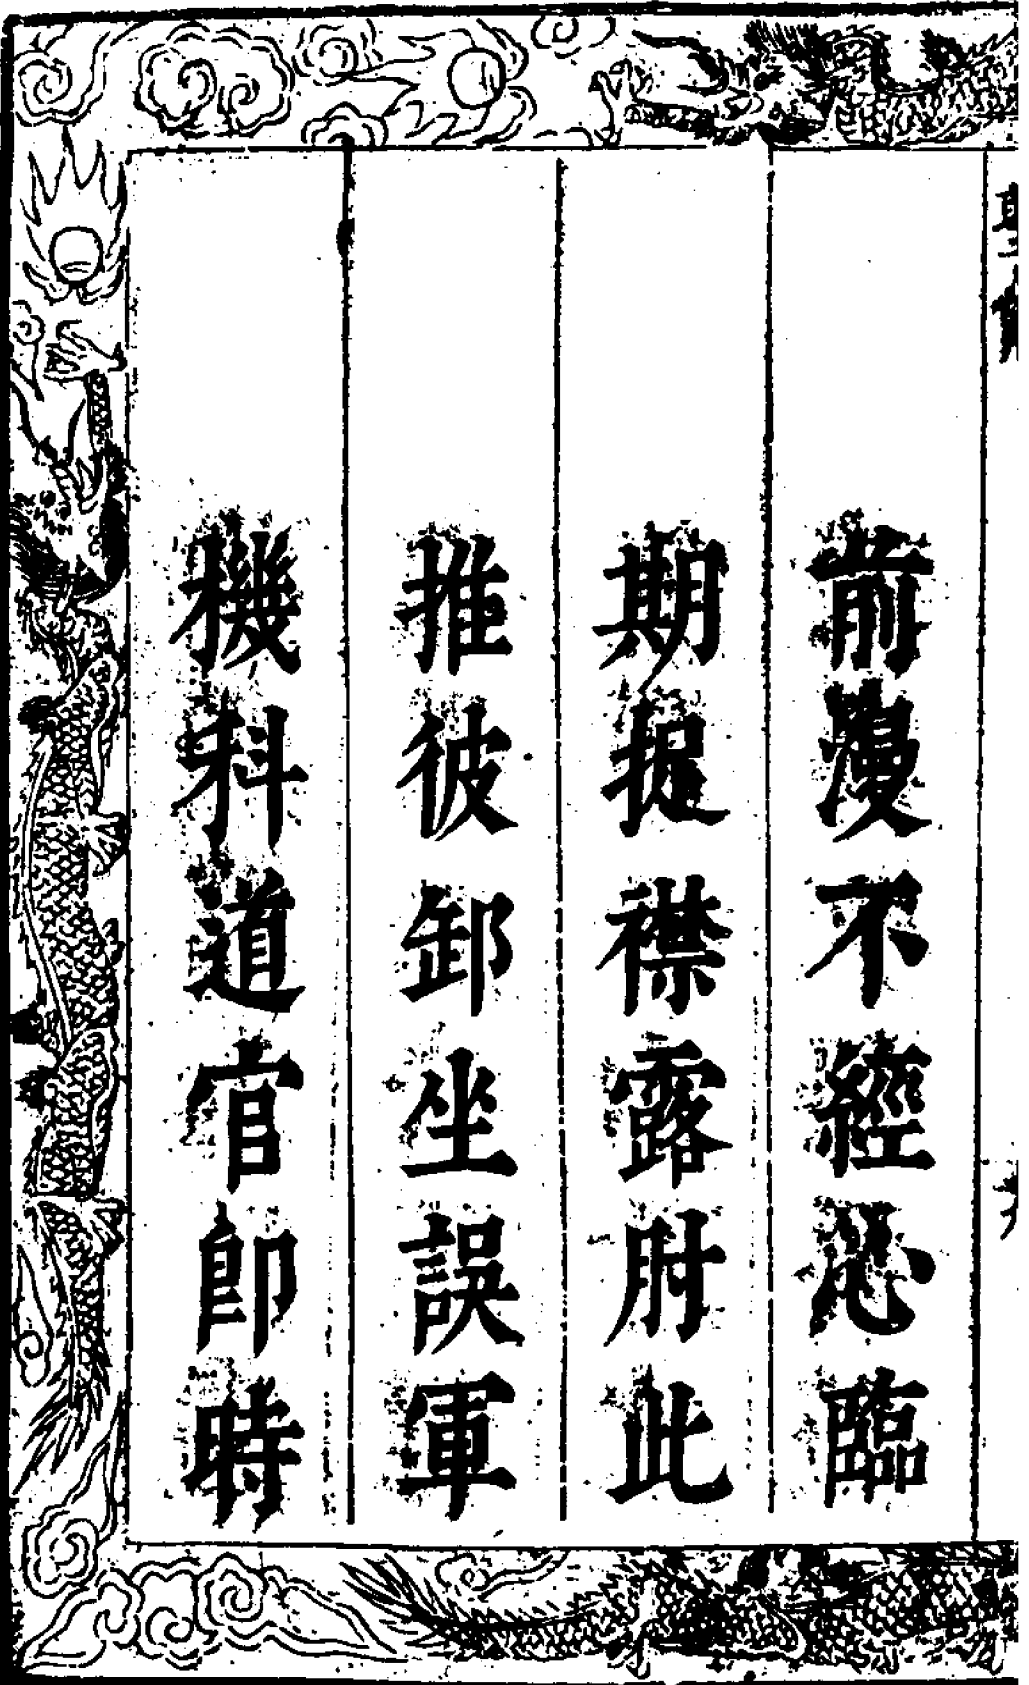 前漫不經恐臨
期捉襟露肘此
推彼卸坐誤軍
機科道官即時